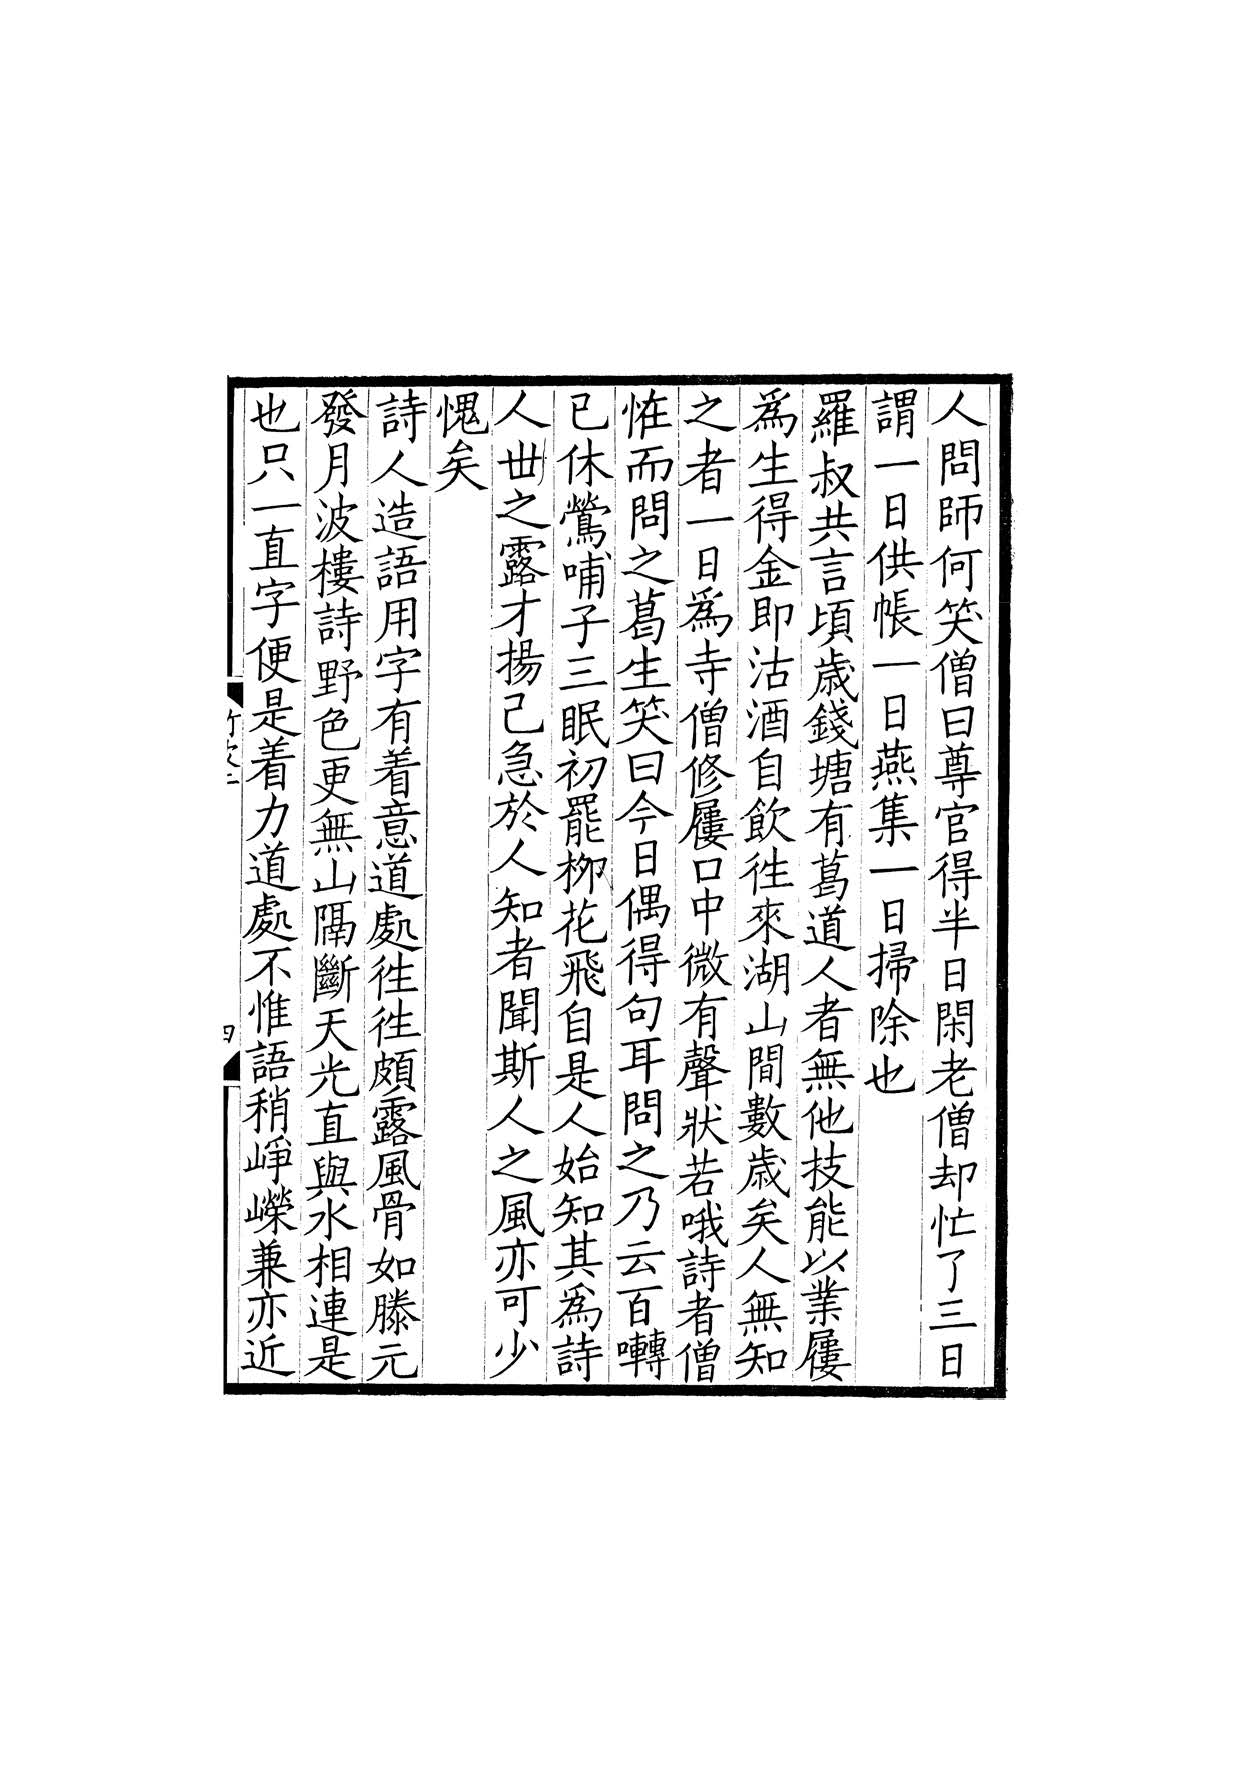 人問師何笑僧曰尊官得半日閑老僧却忙了三日
謂一日供帳一日燕集一日掃除也
羅叔共言頃歳錢塘有葛道人者無他技能以業屨
爲生得金即沽酒自飲徃來湖山間數歳矣人無知
之者一日爲寺僧修屨口中微有聲狀若哦詩者僧
恠而問之葛生笑曰今日偶得句耳問之乃云百囀
已休鶯哺子三眠初罷栁花飛自是人始知其爲詩
人丗之露才揚己急於人知者聞斯人之風亦可少
愧矣
詩人造語用字有着意道處徃徃頗露風骨如滕元
發月波樓詩野色更無山隔斷天光直與水相連是
也只一直字便是着力道處不惟語稍崢嶸兼亦近
四